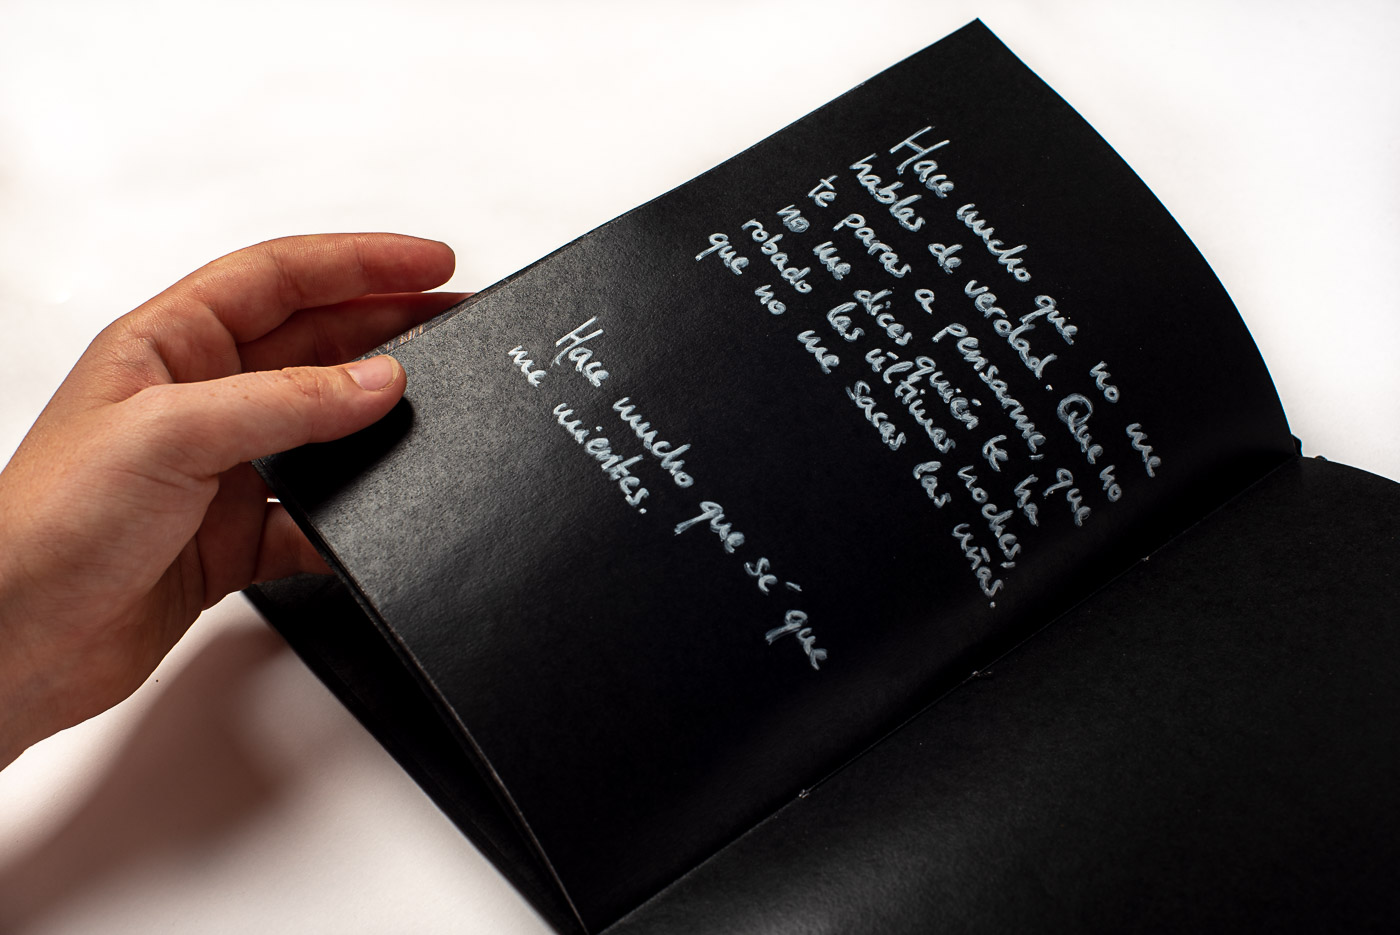 Hace mucho que no me
hablas de verdad. Que no
te paras a pensarme, que
no me dices quién te ha
robado las últimas noches,
que no me sacas las uñas.
Hace mucho que sé que
me mientes.